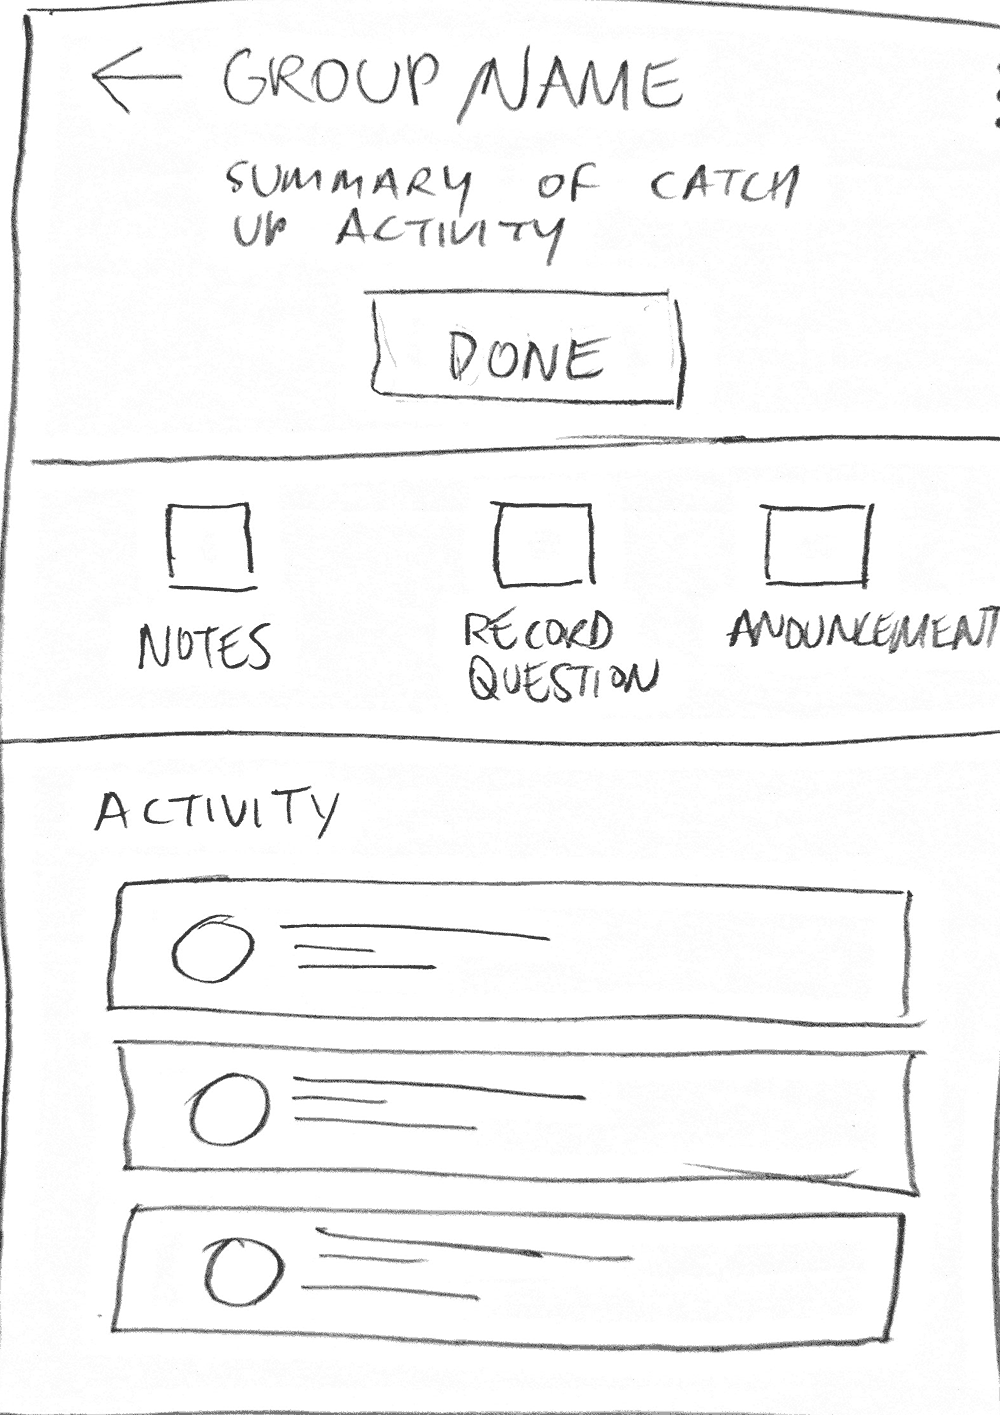 GROUP NAME
SUMMARY OF CATCH
UP ACTIVITY
DONE
NOTES
RECORD
QUESTION
ANOUNCEMENT
ACTIVITY